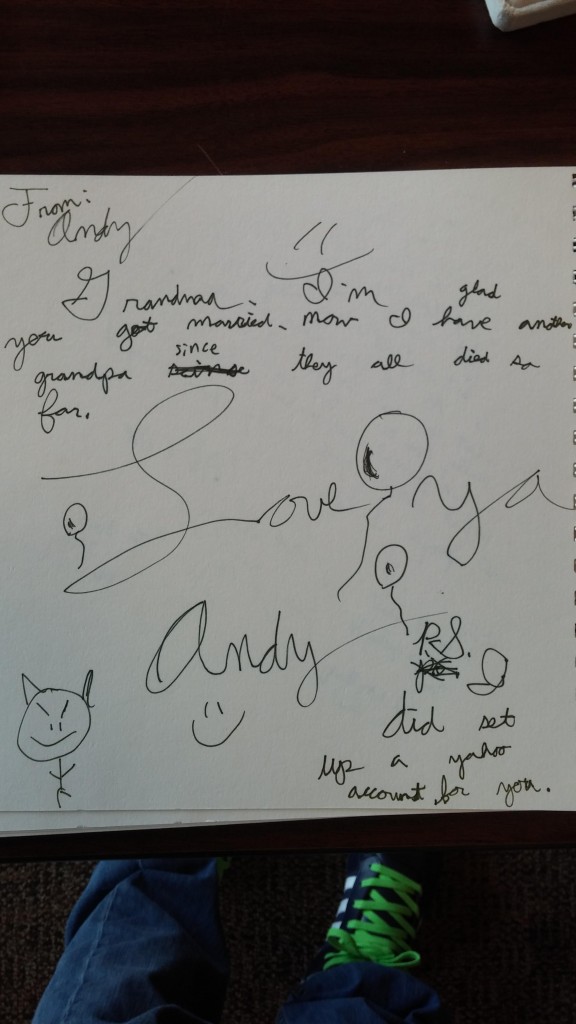 From:
Andy
Grandma. I'm glad
you got married. now I have another
grandpa since they all died so
far.
Love ya
Andy
P.S.
I
did set
up a yahoo
account for you.